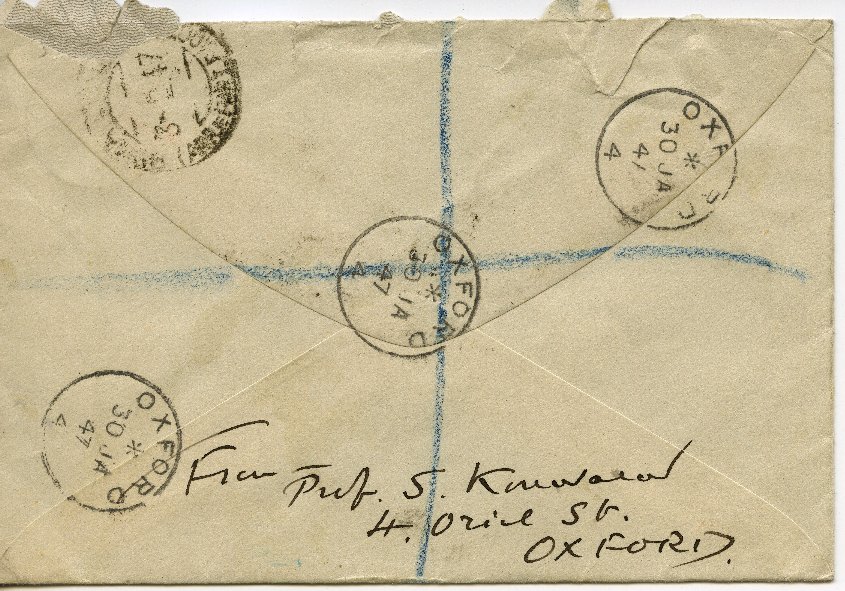 OXFORD
*
30 JA
47
4
OXFORD
*
30 JA
47
4
OXFORD
*
30 JA
47
4
From Prof. S.
4. Oriel St.
OXFORD.